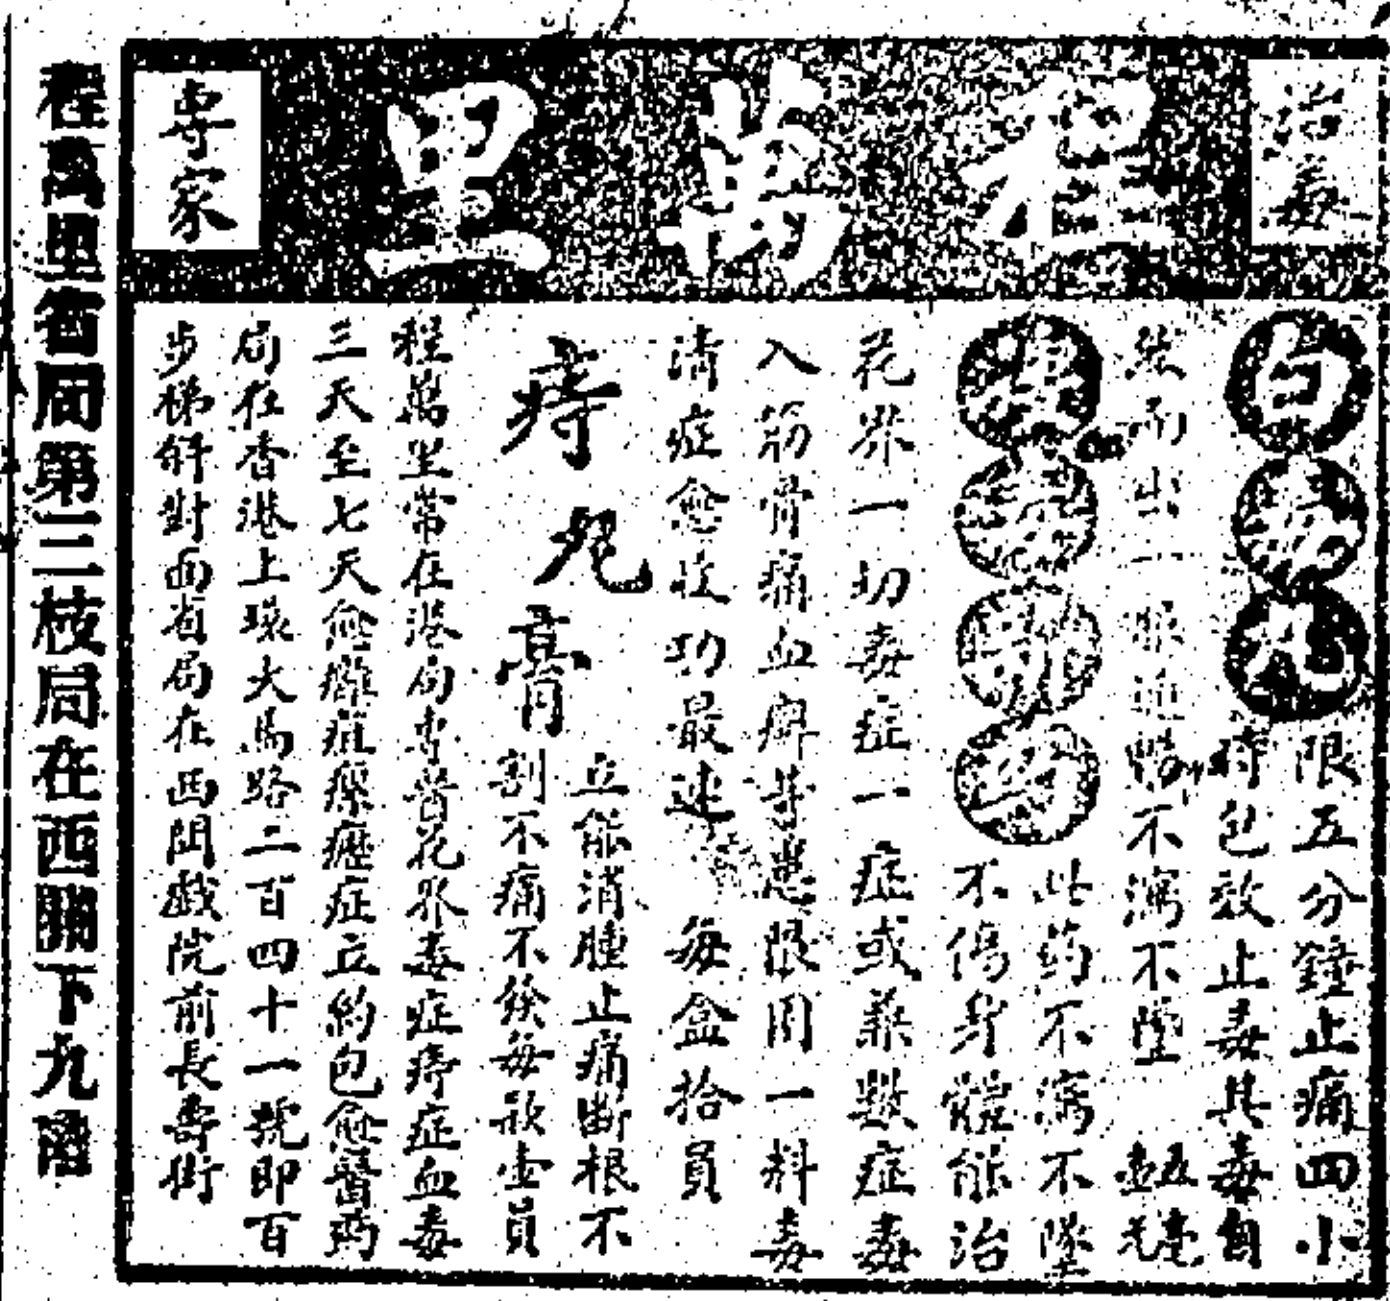 治毒
程萬里
專家
白濁丸
限五分鐘止痛四小
時包效止毒其毒自
然而出二眼近暢不瀉不墜
此药不瀉不墜
不傷身體能治
花界一切毒症一症或兼數症毒
入筋骨痛血癬等患限用一料毒
清症愈收功最速 每盒拾員
痔丸膏
立能消腫止痛斷根不
割不痛不候每敷壹員
程萬里常在港局專醫花界毒症痔症血毒
三天至七天愈癰疽瘰癧症立約包愈醫药
局在香港上環大馬路二百四十一號即百
步梯斜對面省局在西關戲院前長壽街
程萬里省局第三枝局在西關下九